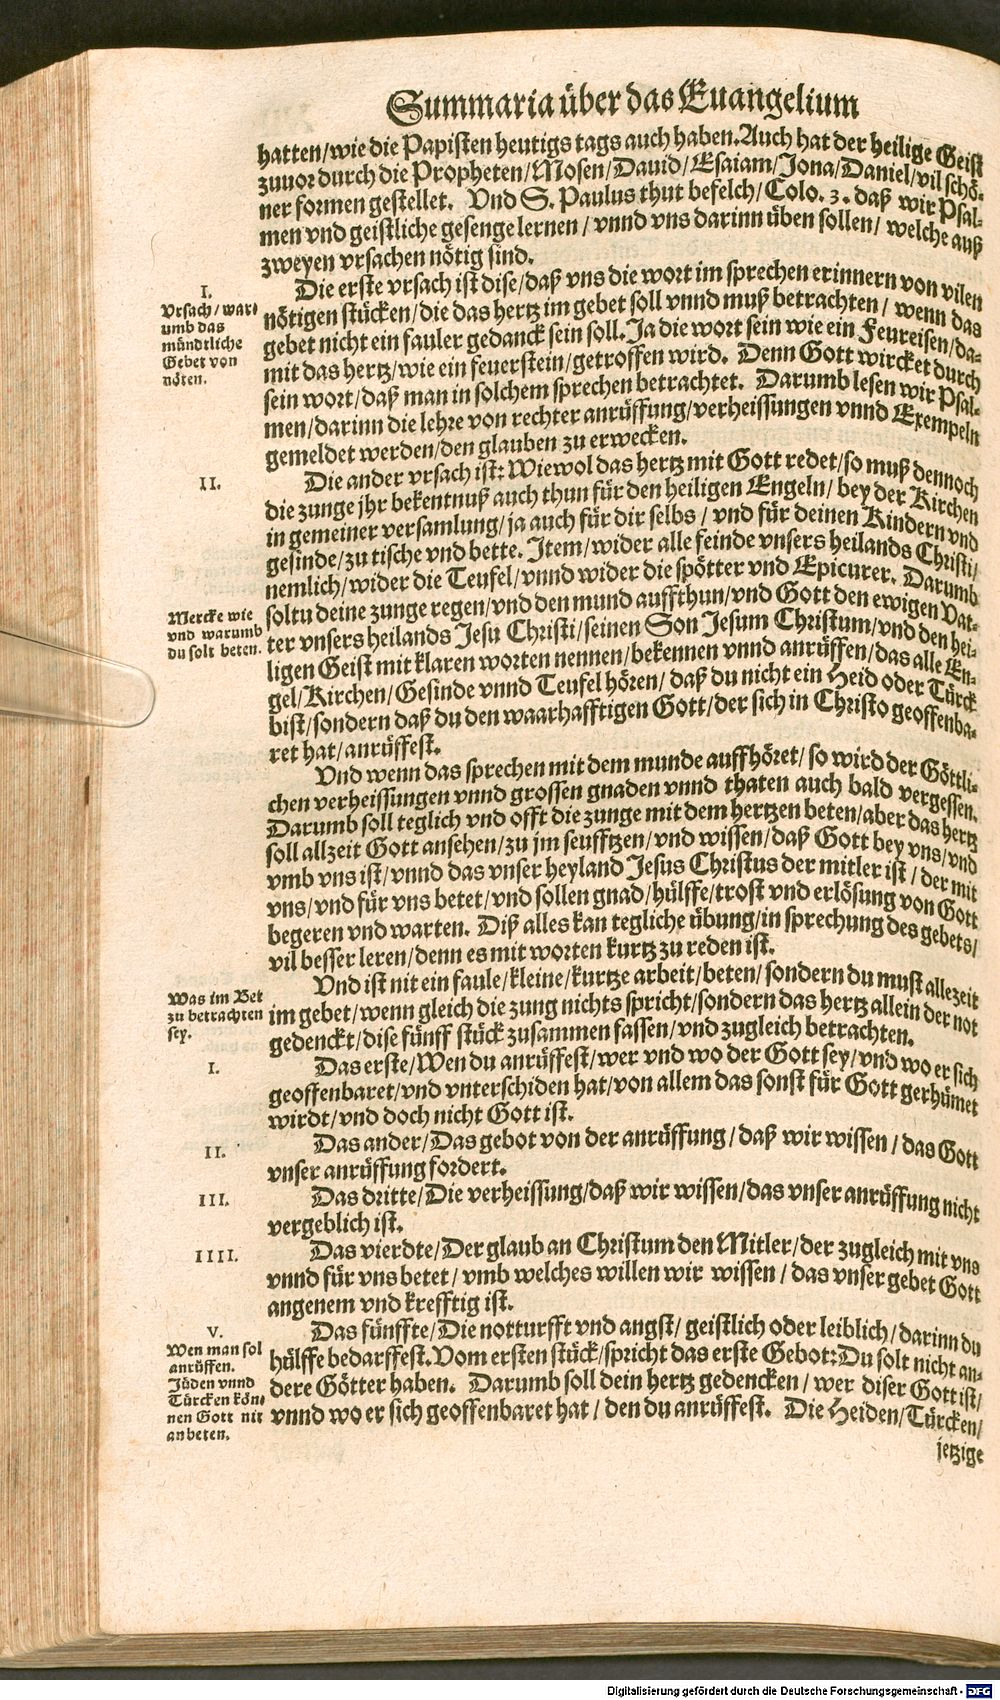 Summaria über das Euangelium
hatten/wie die Papisten heutigs tags auch haben. Auch hat der heilige Geist
zuuor durch die Propheten/Mosen/Dauid/Esaiam/Jona/Daniel/vil schö-
ner formen gestellet. Vnd S. Paulus thut befelch/Colo. 3. daß wir Psal-
men vnd geistliche gesenge lernen/vnnd vns darinn üben sollen/welche auß
zweyen vrsachen nötig sind.
I.
Vrsach/war-
umb das
mündtliche
Gebet von
nöten.
Die erste vrsach ist dise/daß vns die wort im sprechen erinnern von vilen
nötigen stücken/die das hertz im gebet soll vnnd muß betrachten/wenn das
gebet nicht ein fauler gedanck sein soll. Ja die wort sein wie ein Feureisen/da-
mit das hertz/wie ein feuerstein/getroffen wird. Denn Gott wircket durch
sein wort/daß man in solchem sprechen betrachtet. Darumb lesen wir Psal-
men/darinn die lehre von rechter anrüffung/verheissungen vnnd Exempeln
gemeldet werden/den glauben zu erwecken.
II.
Die ander vrsach ist: Wiewol das hertz mit Gott redet/so muß dennoch
die zunge jhr bekentnuß auch thun für den heiligen Engeln/bey der Kirchen
in gemeiner versamlung/ja auch für dir selbs/vnd für deinen Kindern vnd
gesinde/zu tische vnd bette. Item/wider alle feinde vnsers heilands Christi/
nemlich/wider die Teufel/vnnd wider die spötter vnd Epicurer. Darumb
Mercke wie
vnd warumb
du solt beten.
soltu deine zunge regen/vnd den mund auffthun/vnd Gott den ewigen Vat-
ter vnsers heilands Jesu Christi/seinen Son Jesum Christum/vnd den hei-
ligen Geist mit klaren worten nennen/bekennen vnnd anrüffen/das alle En-
gel/Kirchen/Gesinde vnnd Teufel hören/daß du nicht ein Heid oder Türck
bist/sondern daß du den waarhafftigen Gott/der sich in Christo geoffenba-
ret hat/anrüffest.
Vnd wenn das sprechen mit dem munde auffhöret/so wird der Göttli-
chen verheissungen vnnd grossen gnaden vnnd thaten auch bald vergessen.
Darumb soll teglich vnd offt die zunge mit dem hertzen beten/aber das hertz
soll allzeit Gott ansehen/zu jm seufftzen/vnd wissen/daß Gott bey vns/vnd
vmb vns ist/vnnd das vnser heyland Jesus Christus der mitler ist/der mit
vns/vnd für vns betet/vnd sollen gnad/hülffe/trost vnd erlösung von Gott
begeren vnd warten. Diß alles kan tegliche übung/in sprechung des gebets/
vil besser leren/denn es mit worten kurtz zu reden ist.
Was im Bet
zu betrachten
sey.
Vnd ist nit ein faule/kleine/kurtze arbeit/beten/sondern du must allezeit
im gebet/wenn gleich die zung nichts spricht/sondern das hertz allein der not
gedenckt/dise fünff stück zusammen fassen/vnd zugleich betrachten.
I.
Das erste/Wen du anrüffest/wer vnd wo der Gott sey/vnd wo er sich
geoffenbaret/vnd vnterschiden hat/von allem das sonst für Gott gerhümet
wirdt/vnd doch nicht Gott ist.
II.
Das ander/Das gebot von der anrüffung/daß wir wissen/das Gott
vnser anrüffung fordert.
III.
Das dritte/Die verheissung/daß wir wissen/das vnser anrüffung nicht
vergeblich ist.
IIII.
Das vierdte/Der glaub an Christum den Mitler/der zugleich mit vns
vnnd für vns betet/vmb welches willen wir wissen/das vnser gebet Gott
angenem vnd krefftig ist.
V.
Wen man sol
anrüffen.
Jüden vnnd
Türcken kön-
nen Gott nit
anbeten.
Das fünffte/Die notturfft vnd angst/geistlich oder leiblich/darinn du
hülffe bedarffest. Vom ersten stück/spricht das erste Gebot: Du solt nicht an-
dere Götter haben. Darumb soll dein hertz gedencken/wer diser Gott ist/
vnnd wo er sich geoffenbaret hat/den du anrüffest. Die Heiden/Türcken/
jetzige
Digitalisierung gefördert durch die Deutsche Forschungsgemeinschaft - DFG